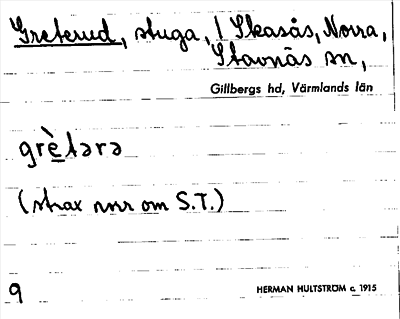 Greterud, stuga, / Skasås, Norra,
Stavnäs sn,
Gillbergs hd, Värmlands län
grè̱tərə
(strax nnr om S.T.)
9
HERMAN HULTSTRÖM c. 1915